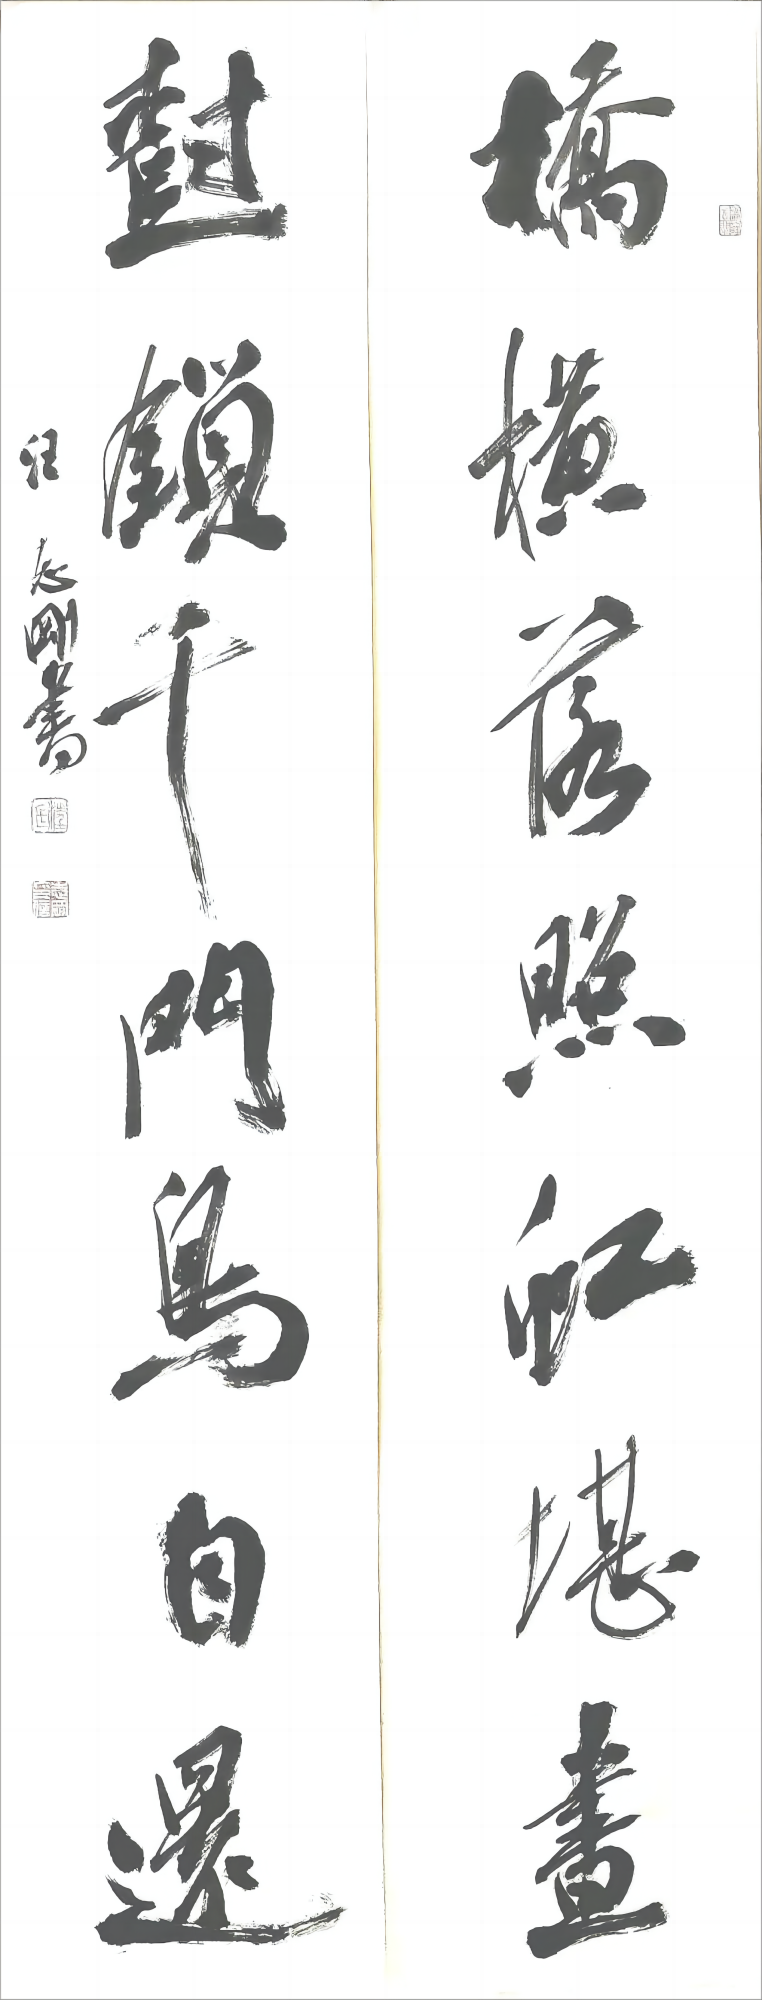 橋橫落照虹堪畫
樹鎖千門鳥自還
志剛書